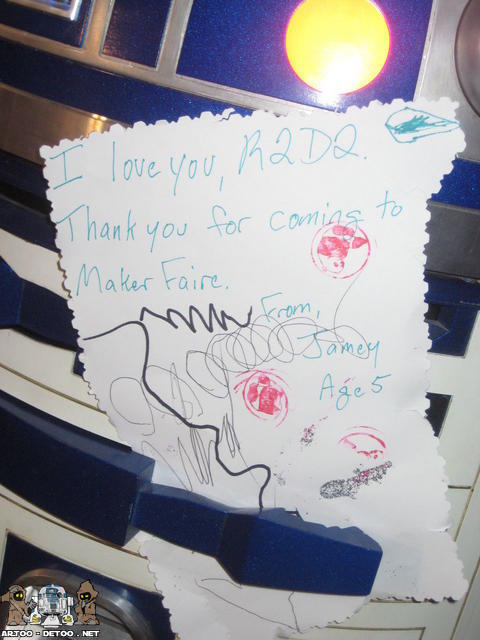 I love you, R2D2.
Thank you for coming to
Maker Faire.
From,
Jamey
Age 5
ARTOO-DETOO.NET